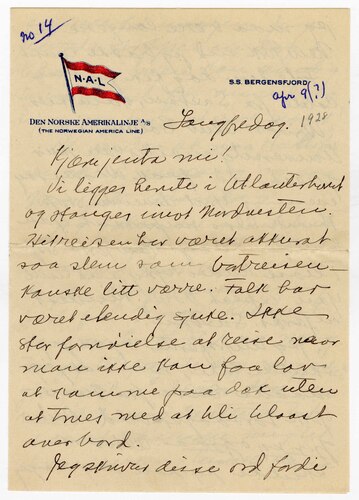 no 14
N·A·L
S.S. BERGENSFJORD
apr 9(?)
DEN NORSKE AMERIKALINJE A/S
(THE NORWEGIAN AMERICA LINE)
Langfredag. 1928
Kjære jenta mi!
Vi ligger herute i Atlanterhavet
og stanges imot Nordvesten.
Hitreisen har været akkurat
saa slem som botreisen –
kanske litt værre. Folk har
været elendig sjuke. Ikke
stor fornöielse at reise naar
man ikke kan faa lov
at komme paa dæk uten
at trues med at bli blaast
overbord.
Jeg skriver disse ord fordi